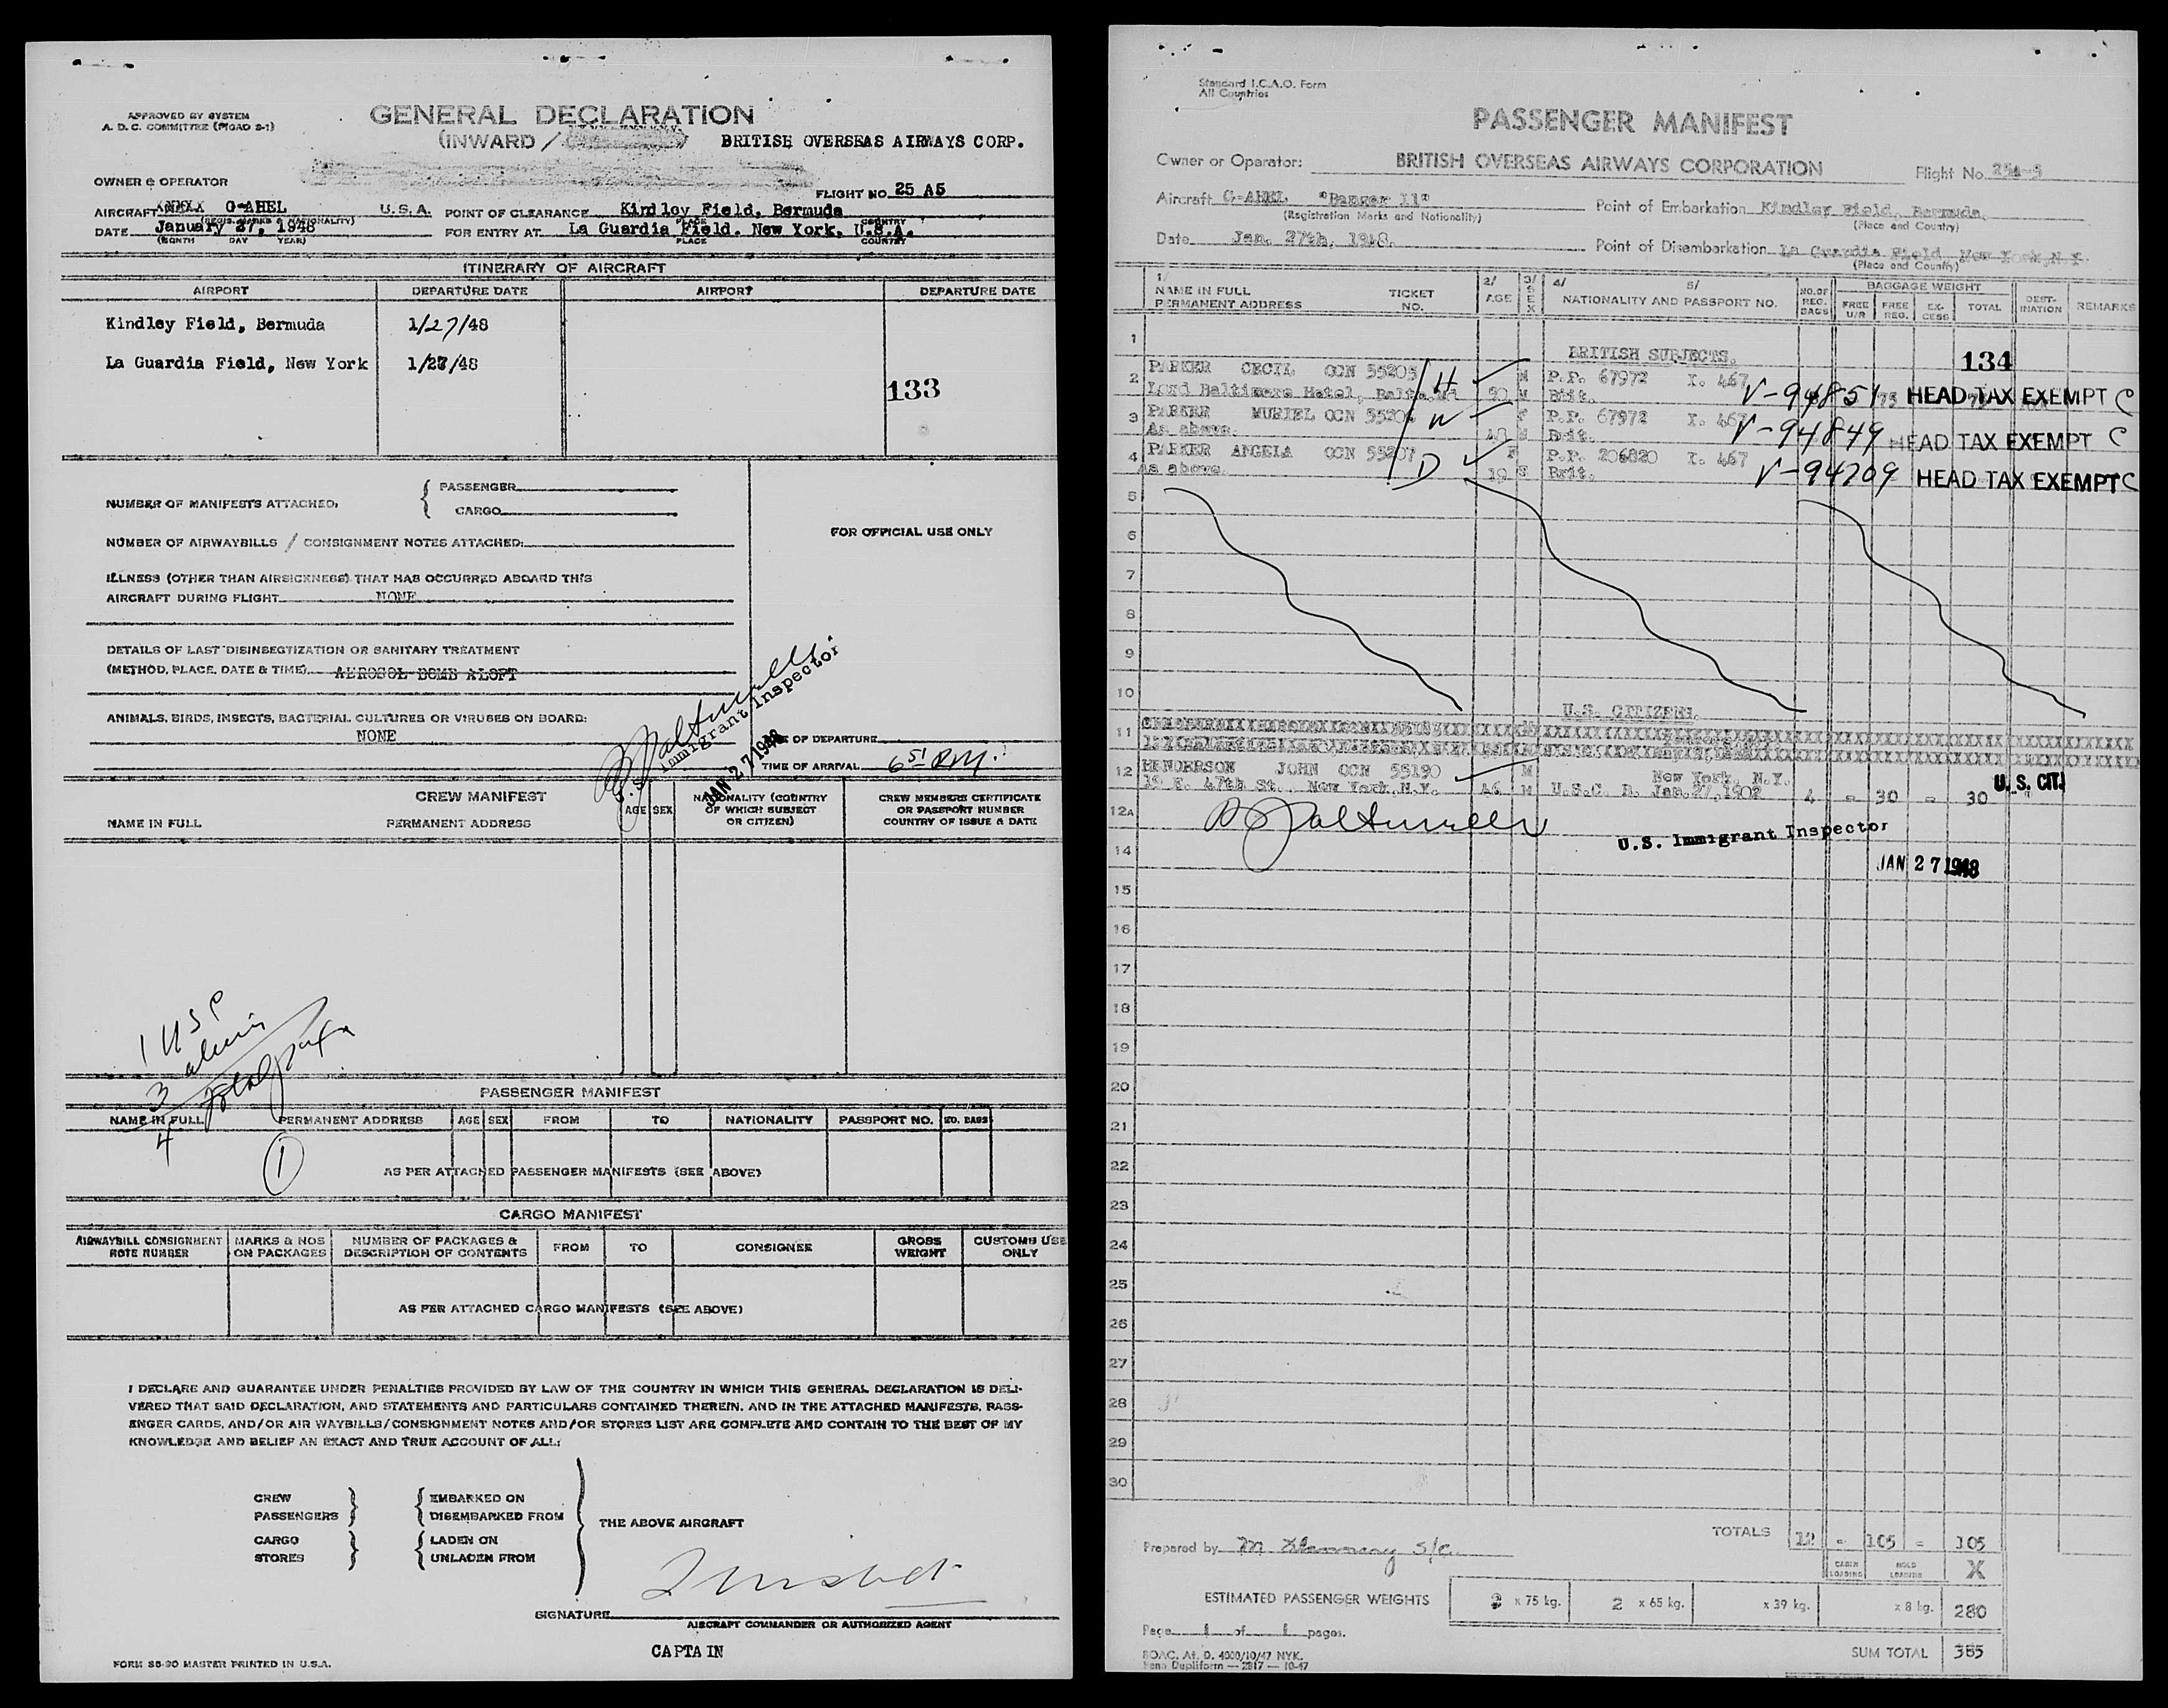 APPROVED BY SYSTEM
A. D. C. COMMITTEE (PIGAO S-1)
GENERAL DECLARATION
(INWARD /
BRITISH OVERSEAS AIRWAYS CORP.
OWNER @ OPERATOR
FLIGHT NO. 25 A5
AIRCRAFT G-AHEL U.S.A. POINT OF CLEARANCE Kindley Field, Bermuda
(REGIS. MARKS & NATIONALITY) PLACE COUNTRY
DATE January 27, 1948 FOR ENTRY AT La Guardia Field. New York, U.S.A.
(MONTH DAY YEAR) PLACE COUNTRY
ITINERARY OF AIRCRAFT
AIRPORT DEPARTURE DATE AIRPORT DEPARTURE DATE
Kindley Field, Bermuda 1/27/48
La Guardia Field, New York 1/27/48
133
NUMBER OF MANIFESTS ATTACHED, { PASSENGER
CARGO
NUMBER OF AIRWAYBILLS / CONSIGNMENT NOTES ATTACHED:
FOR OFFICIAL USE ONLY
ILLNESS (OTHER THAN AIRSICKNESS) THAT HAS OCCURRED ABOARD THIS
AIRCRAFT DURING FLIGHT NONE
DETAILS OF LAST DISINSECTIZATION OR SANITARY TREATMENT
(METHOD, PLACE, DATE & TIME). AEROSOL BOMB ALOFT
ANIMALS, BIRDS, INSECTS, BACTERIAL CULTURES OR VIRUSES ON BOARD:
NONE
U.S. Immigrant Inspector
JAN 27 1948
OF DEPARTURE
TIME OF ARRIVAL 6 51 P.M.
CREW MANIFEST
NAME IN FULL PERMANENT ADDRESS
AGE SEX
NATIONALITY (COUNTRY
OF WHICH SUBJECT
OR CITIZEN)
CREW MEMBERS CERTIFICATE
OR PASSPORT NUMBER
COUNTRY OF ISSUE & DATE
1 USC
3 aliens
4 total
PASSENGER MANIFEST
NAME IN FULL PERMANENT ADDRESS AGE SEX FROM TO NATIONALITY PASSPORT NO. NO. BAGS
1
AS PER ATTACHED PASSENGER MANIFESTS (SEE ABOVE)
CARGO MANIFEST
AIRWAYBILL CONSIGNMENT
NOTE NUMBER
MARKS & NOS
ON PACKAGES
NUMBER OF PACKAGES &
DESCRIPTION OF CONTENTS
FROM TO CONSIGNEE
GROSS
WEIGHT
CUSTOMS USE
ONLY
AS PER ATTACHED CARGO MANIFESTS (SEE ABOVE)
I DECLARE AND GUARANTEE UNDER PENALTIES PROVIDED BY LAW OF THE COUNTRY IN WHICH THIS GENERAL DECLARATION IS DELI-
VERED THAT SAID DECLARATION, AND STATEMENTS AND PARTICULARS CONTAINED THEREIN, AND IN THE ATTACHED MANIFESTS, PASS-
ENGER CARDS, AND/OR AIR WAYBILLS/CONSIGNMENT NOTES AND/OR STORES LIST ARE COMPLETE AND CONTAIN TO THE BEST OF MY
KNOWLEDGE AND BELIEF AN EXACT AND TRUE ACCOUNT OF ALL:
CREW EMBARKED ON
PASSENGERS DISEMBARKED FROM
THE ABOVE AIRCRAFT
CARGO LADEN ON
STORES UNLADEN FROM
SIGNATURE
AIRCRAFT COMMANDER OR AUTHORIZED AGENT
CAPTAIN
FORM S5-90 MASTER PRINTED IN U.S.A.
Standard I.C.A.O. Form
All Countries
PASSENGER MANIFEST
Owner or Operator: BRITISH OVERSEAS AIRWAYS CORPORATION Flight No. 25A-5
Aircraft G-AHEL "Bangor II"
(Registration Marks and Nationality)
Point of Embarkation Kindley Field, Bermuda.
(Place and Country)
Date Jan. 27th, 1948.
Point of Disembarkation La Guardia Field New York, N.Y.
(Place and Country)
1/ NAME IN FULL
PERMANENT ADDRESS
TICKET
NO.
2/ AGE
3/ SEX
4/ 5/
NATIONALITY AND PASSPORT NO.
NO. OF
REG.
BAGS
BAGGAGE WEIGHT
FREE U/R
FREE REG.
EX-CESS
TOTAL
DEST-INATION
REMARKS
1
BRITISH SUBJECTS.
134
2 PARKER CECIL OCN 55205 H M P.P. 67972 I. 467
Lord Baltimore Hotel, Balto, Md 50 M Brit. V-94851 75 HEAD TAX EXEMPT C
3 PARKER MURIEL OCN 55206 W F P.P. 67972 I. 467
As above. Brit. V-94849 HEAD TAX EXEMPT C
4 PARKER ANGELA OCN 55207 D F P.P. 206820 I. 467
As above. 19 S Brit. V-94709 HEAD TAX EXEMPT C
5
6
7
8
9
10
U.S. CITIZENS.
11
12 HENDERSON JOHN OCN 55190 M New York, N.Y.
15 E. 47th St., New York, N.Y. 46 M U.S.C. B. Jan.27,1902 4 - 30 - 30 U.S. CIT.
12A
U.S. Immigrant Inspector
14
JAN 27 1948
15
16
17
18
19
20
21
22
23
24
25
26
27
28
29
30
TOTALS 12 - 105 - 105
Prepared by
CABIN
LOADING
HOLD
LOADING
X
ESTIMATED PASSENGER WEIGHTS 2 x 75 kg. 2 x 65 kg. x 39 kg. x 8 kg. 280
Page 1 of 1 pages.
SUM TOTAL 385
BOAC. At. D. 4000/10/47 NYK.
Penn Dupliform — 2817 — 10-47